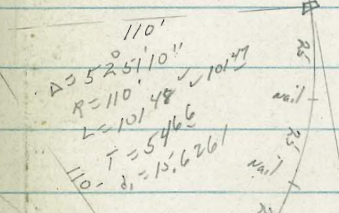 110'
Δ = 52° 51' 10"
R = 110'
L = 101.48 ✓ ✓ 101.47
T = 54.66
d₁ = 15.6261
110-
25'
Nail
25'
Nail